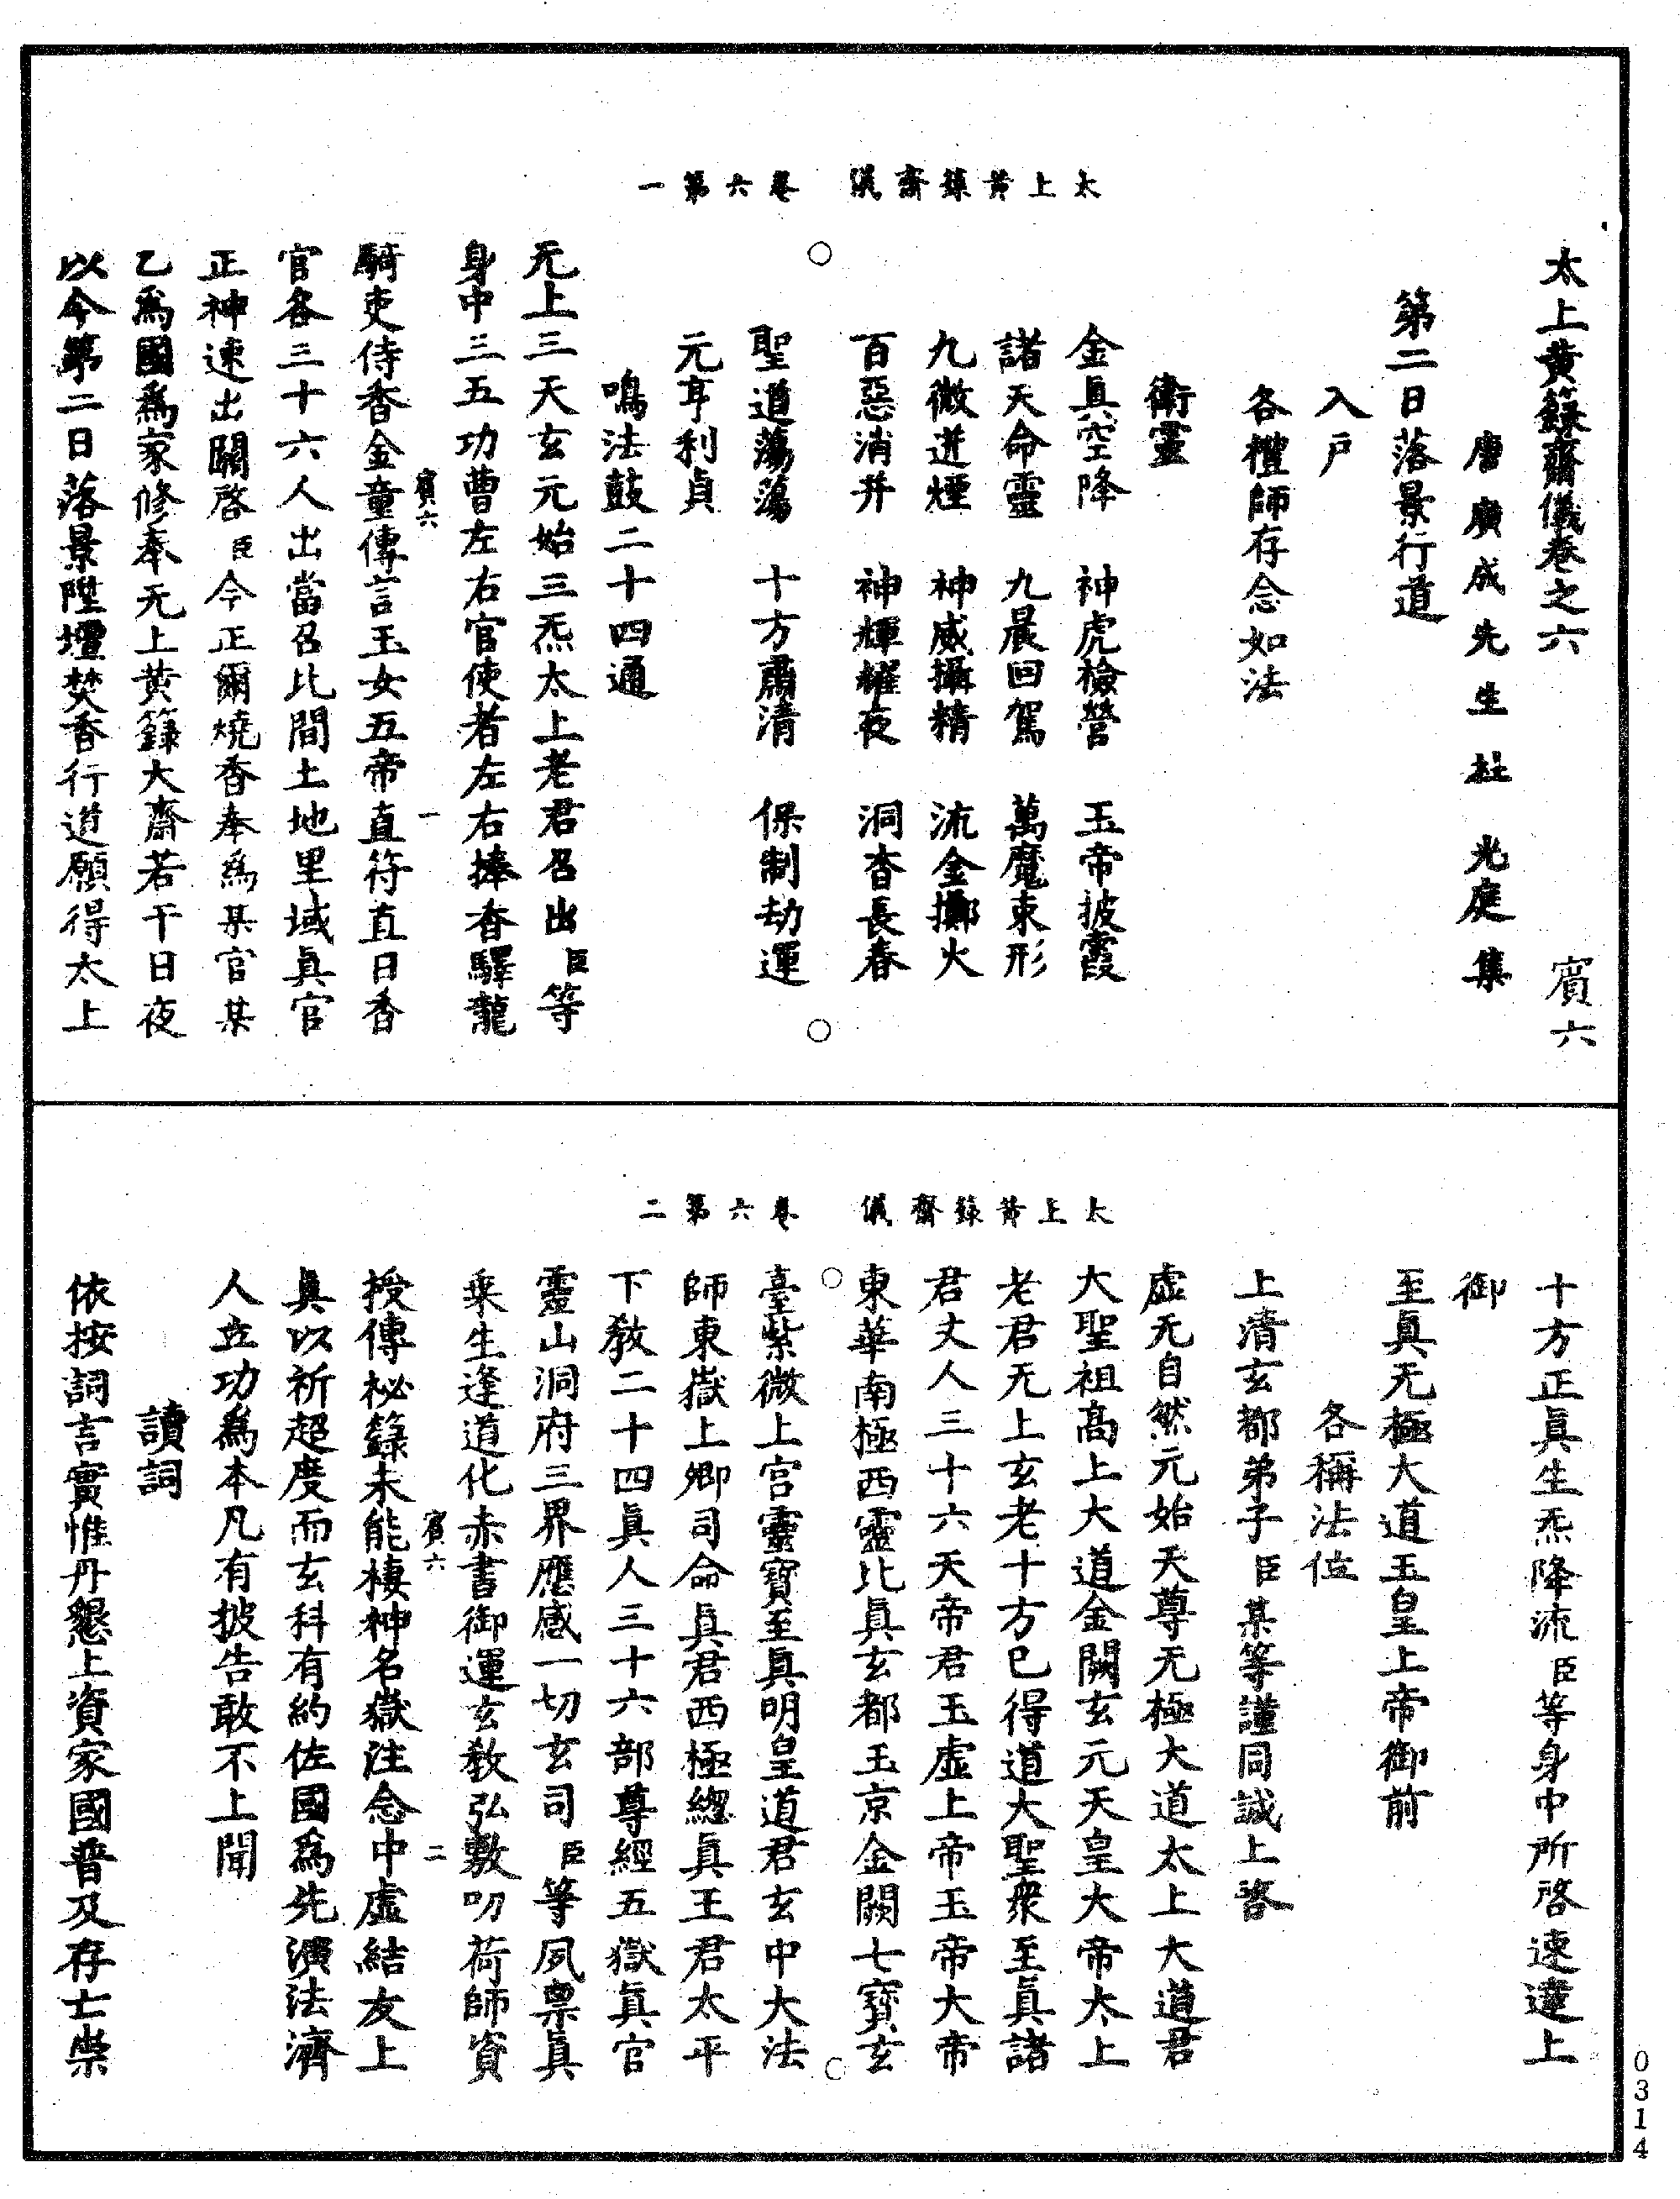 太上黃籙齋儀卷第六一
太上黃籙齋儀卷之六 賓六
唐廣成先生杜光庭集
第二日落景行道
入戶
各禮師存念如法
衛靈
金真空降 神虎檢營 玉帝披霞
諸天命靈 九晨回駕 萬魔束形
九微迸煙 神威攝精 流金擲火
百惡消幷 神輝耀夜 洞杳長春
聖道蕩蕩 十方肅清 保制劫運
元亨利貞
鳴法鼓二十四通
无上三天玄元始三炁太上老君召出臣等
身中三五功曹左右官使者左右捧香驛龍
騎吏侍香金童傳言玉女五帝直符直日香
賓六 一
官各三十六人出當召比間土地里域真官
正神速出關啓臣今正爾燒香奉爲某官某
乙爲國爲家修奉无上黃籙大齋若干日夜
以今第二日落景陞壇焚香行道願得太上
太上黃籙齋儀 卷六第二
十方正真生炁降流臣等身中所啓速達上
御
至真无極大道玉皇上帝御前
各稱法位
上清玄都弟子臣某等謹同誠上啓
虛无自然元始天尊无極大道太上大道君
大聖祖高上大道金闕玄元天皇大帝太上
老君无上玄老十方已得道大聖衆至真諸
君丈人三十六天帝君玉虛上帝玉帝大帝
東華南極西靈比真玄都玉京金闕七寶玄
臺紫微上宫靈寶至真明皇道君玄中大法
師東嶽上卿司命真君西極緫真王君太平
下教二十四真人三十六部尊經五嶽真官
靈山洞府三界應感一切玄司臣等夙稟真
乘生逢道化赤書御運玄教弘敷叨荷師資
授傳祕籙未能棲神名嶽注念中虛結友上
賓六 二
真以祈超度而玄科有約佐國爲先演法濟
人立功爲本凡有披告敢不上聞
讀詞
依按詞言實惟丹懇上資家國普及存亡崇
0314